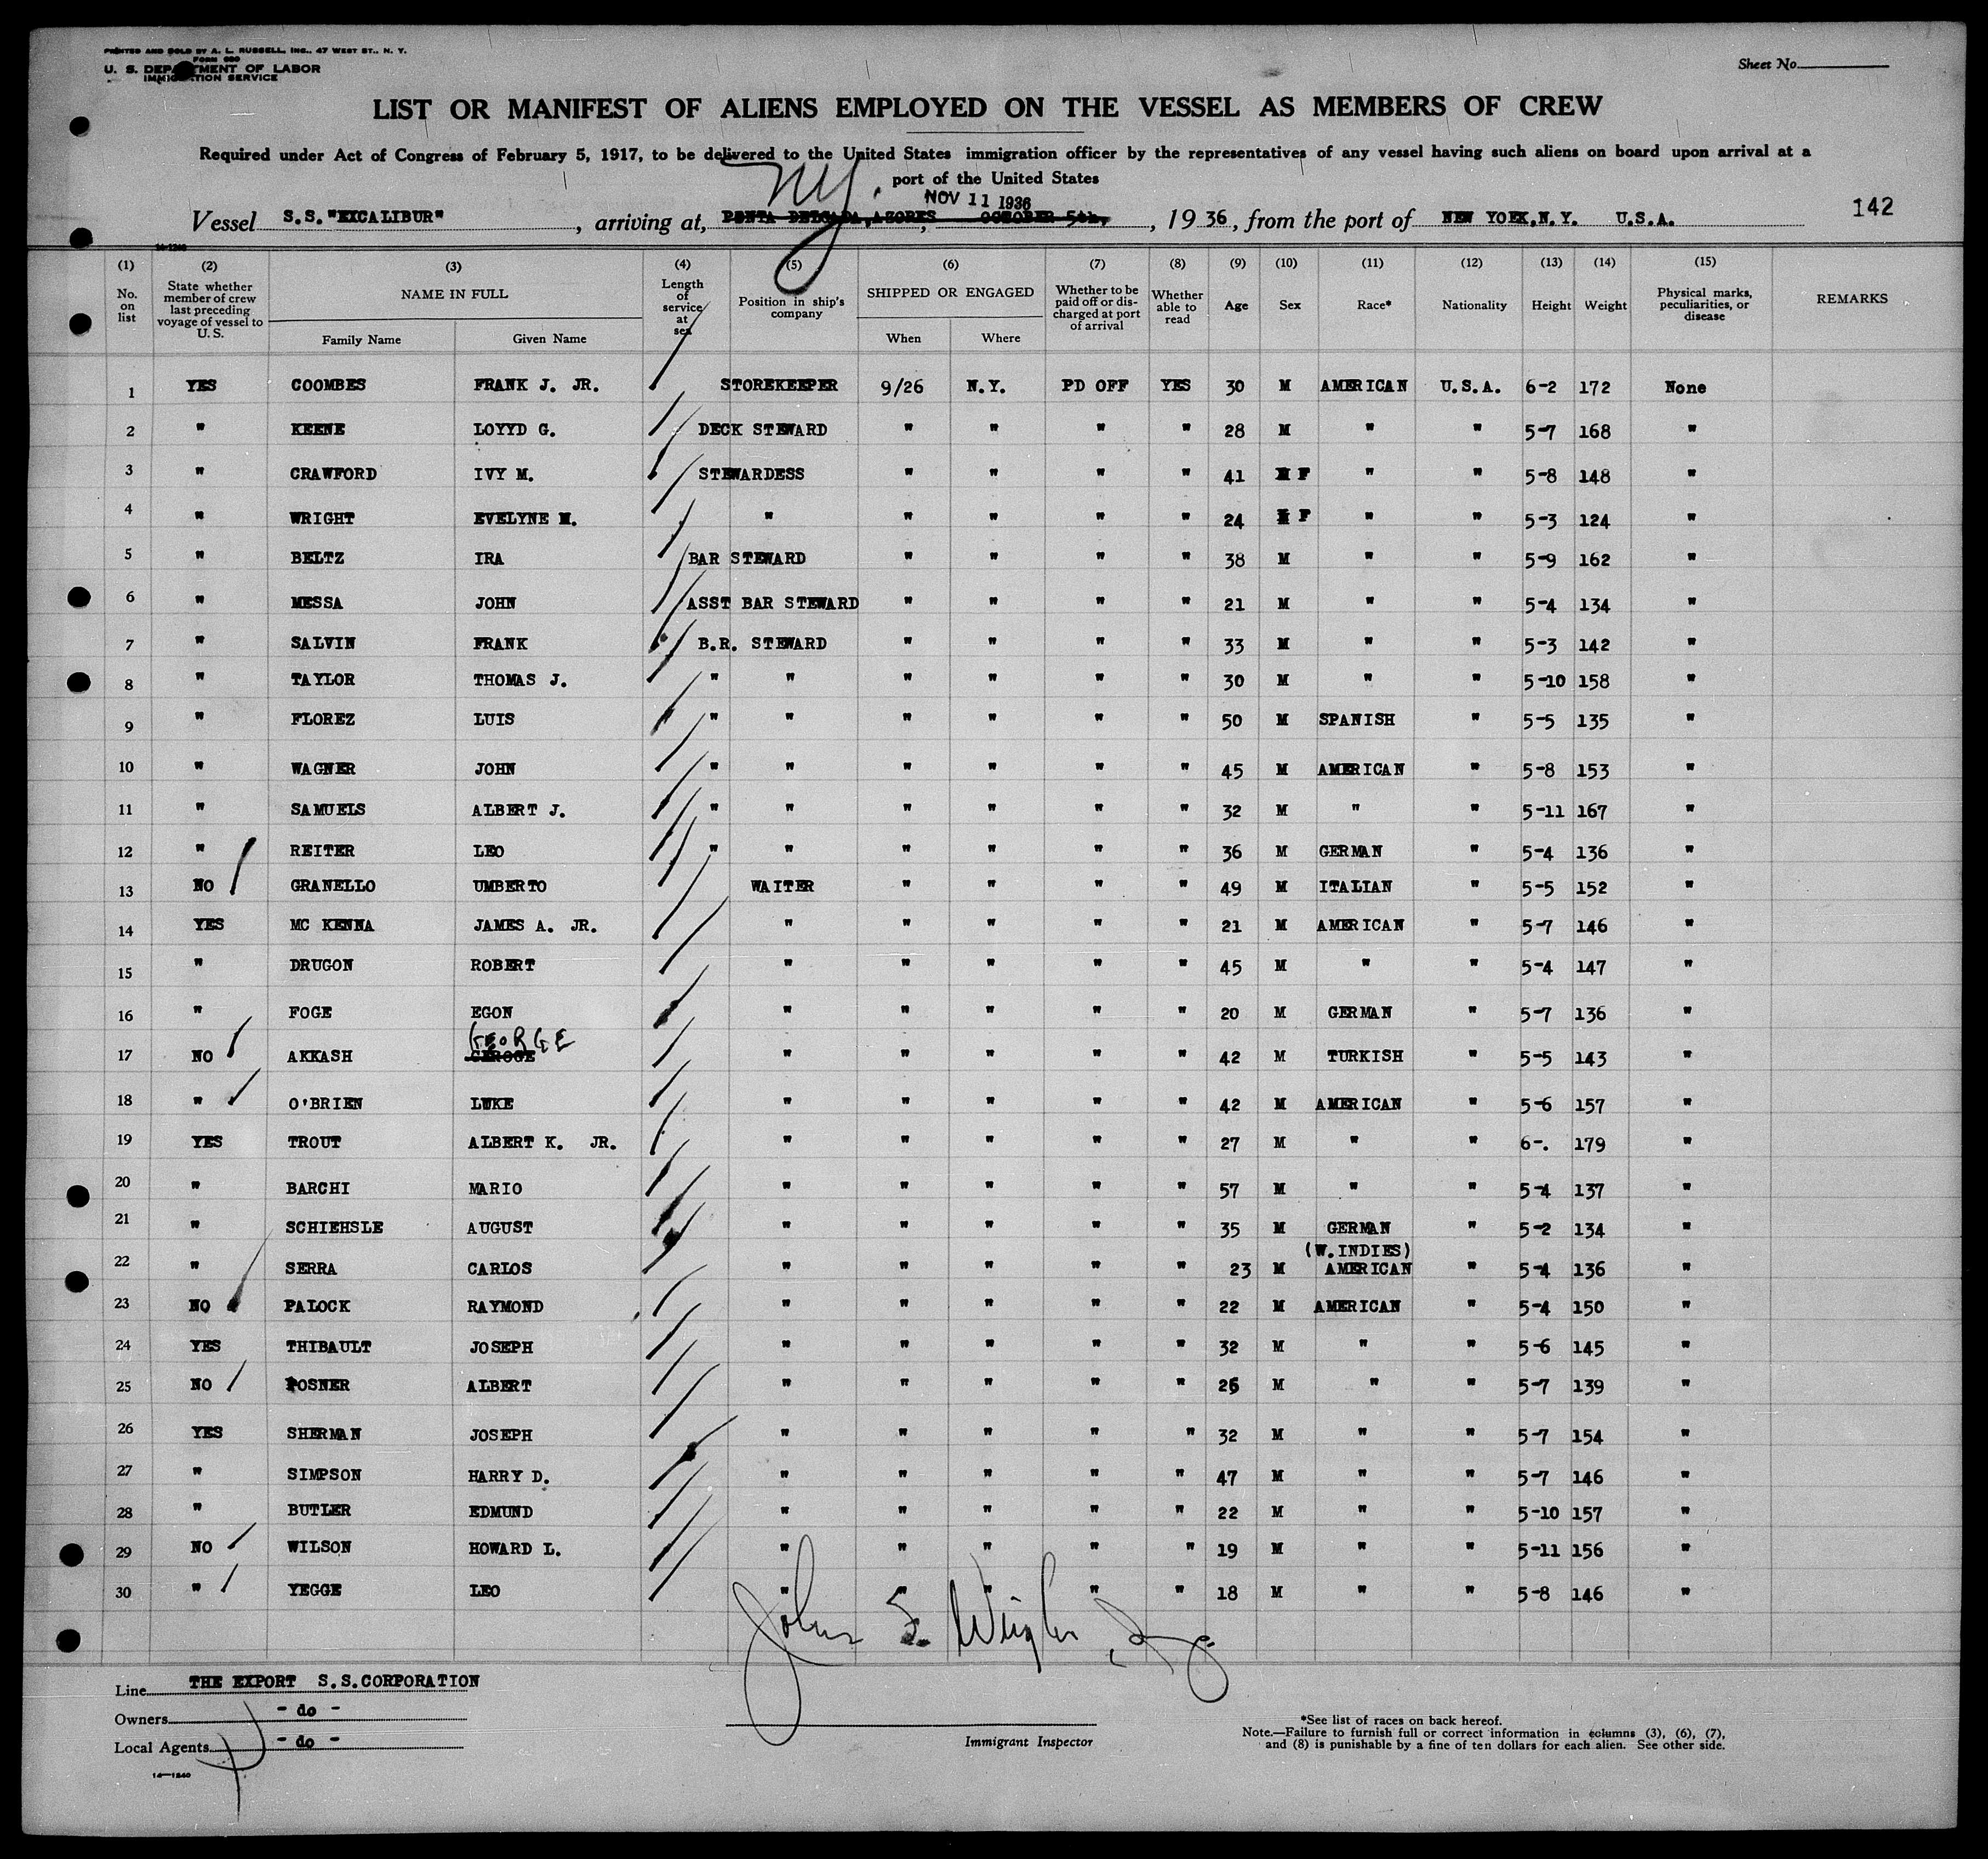 PRINTED AND SOLD BY A. L. RUSSELL, INC., 47 WEST ST., N. Y.
FORM 680
U. S. DEPARTMENT OF LABOR
IMMIGRATION SERVICE
Sheet No.
LIST OR MANIFEST OF ALIENS EMPLOYED ON THE VESSEL AS MEMBERS OF CREW
Required under Act of Congress of February 5, 1917, to be delivered to the United States immigration officer by the representatives of any vessel having such aliens on board upon arrival at a
port of the United States
NY.
NOV 11 1936
Vessel S.S."EXCALIBUR", arriving at, PONTA DELGADA, AZORES OCTOBER 5th, , 1936, from the port of NEW YORK, N.Y. U.S.A. 142
14-1240
(1) (2) (3) (4) (5) (6) (7) (8) (9) (10) (11) (12) (13) (14) (15)
No. on list State whether member of crew last preceding voyage of vessel to U. S. NAME IN FULL Length of service at sea Position in ship's company SHIPPED OR ENGAGED Whether to be paid off or discharged at port of arrival Whether able to read Age Sex Race* Nationality Height Weight Physical marks, peculiarities, or disease REMARKS
Family Name Given Name When Where
1 YES COOMBES FRANK J. JR. STOREKEEPER 9/26 N.Y. PD OFF YES 30 M AMERICAN U.S.A. 6-2 172 None
2 " KEENE LOYYD G. DECK STEWARD " " " " 28 M " " 5-7 168 "
3 " CRAWFORD IVY M. STEWARDESS " " " " 41 M F " " 5-8 148 "
4 " WRIGHT EVELYNE M. " " " " " 24 M F " " 5-3 124 "
5 " BELTZ IRA BAR STEWARD " " " " 38 M " " 5-9 162 "
6 " MESSA JOHN ASST BAR STEWARD " " " " 21 M " " 5-4 134 "
7 " SALVIN FRANK B.R. STEWARD " " " " 33 M " " 5-3 142 "
8 " TAYLOR THOMAS J. " " " " " " 30 M " " 5-10 158 "
9 " FLOREZ LUIS " " " " " " 50 M SPANISH " 5-5 135 "
10 " WAGNER JOHN " " " " " " 45 M AMERICAN " 5-8 153 "
11 " SAMUELS ALBERT J. " " " " " " 32 M " " 5-11 167 "
12 " REITER LEO " " " " " " 36 M GERMAN " 5-4 136 "
13 NO GRANELLO UMBERTO WAITER " " " " 49 M ITALIAN " 5-5 152 "
14 YES MC KENNA JAMES A. JR. " " " " " 21 M AMERICAN " 5-7 146 "
15 " DRUGON ROBERT " " " " " 45 M " " 5-4 147 "
16 " FOGE EGON " " " " " 20 M GERMAN " 5-7 136 "
GEORGE
17 NO AKKASH GEROGE " " " " " 42 M TURKISH " 5-5 143 "
18 " O'BRIEN LUKE " " " " " 42 M AMERICAN " 5-6 157 "
19 YES TROUT ALBERT K. JR. " " " " " 27 M " " 6-. 179 "
20 " BARCHI MARIO " " " " " 57 M " " 5-4 137 "
21 " SCHIEHSLE AUGUST " " " " " 35 M GERMAN " 5-2 134 "
(W.INDIES)
22 " SERRA CARLOS " " " " " 23 M AMERICAN " 5-4 136 "
23 NO PALOCK RAYMOND " " " " " 22 M AMERICAN " 5-4 150 "
24 YES THIBAULT JOSEPH " " " " " 32 M " " 5-6 145 "
25 NO POSNER ALBERT " " " " " 26 M " " 5-7 139 "
26 YES SHERMAN JOSEPH " " " " " 32 M " " 5-7 154 "
27 " SIMPSON HARRY D. " " " " " 47 M " " 5-7 146 "
28 " BUTLER EDMUND " " " " " 22 M " " 5-10 157 "
29 NO WILSON HOWARD L. " " " " " 19 M " " 5-11 156 "
30 " YEGGE LEO " " " " " 18 M " " 5-8 146 "
John S.
Line THE EXPORT S.S.CORPORATION
Owners - do -
Local Agents - do -
14-1240
Immigrant Inspector
*See list of races on back hereof.
Note.—Failure to furnish full or correct information in columns (3), (6), (7),
and (8) is punishable by a fine of ten dollars for each alien. See other side.